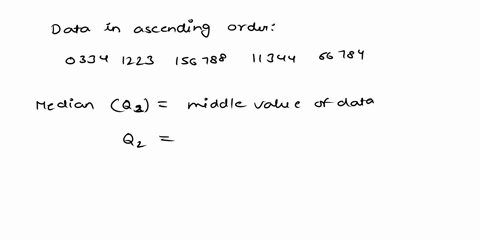 Data in ascending order:
0334 1223 156788 11344 66784
Median (Q2) = middle value of data
Q2 =